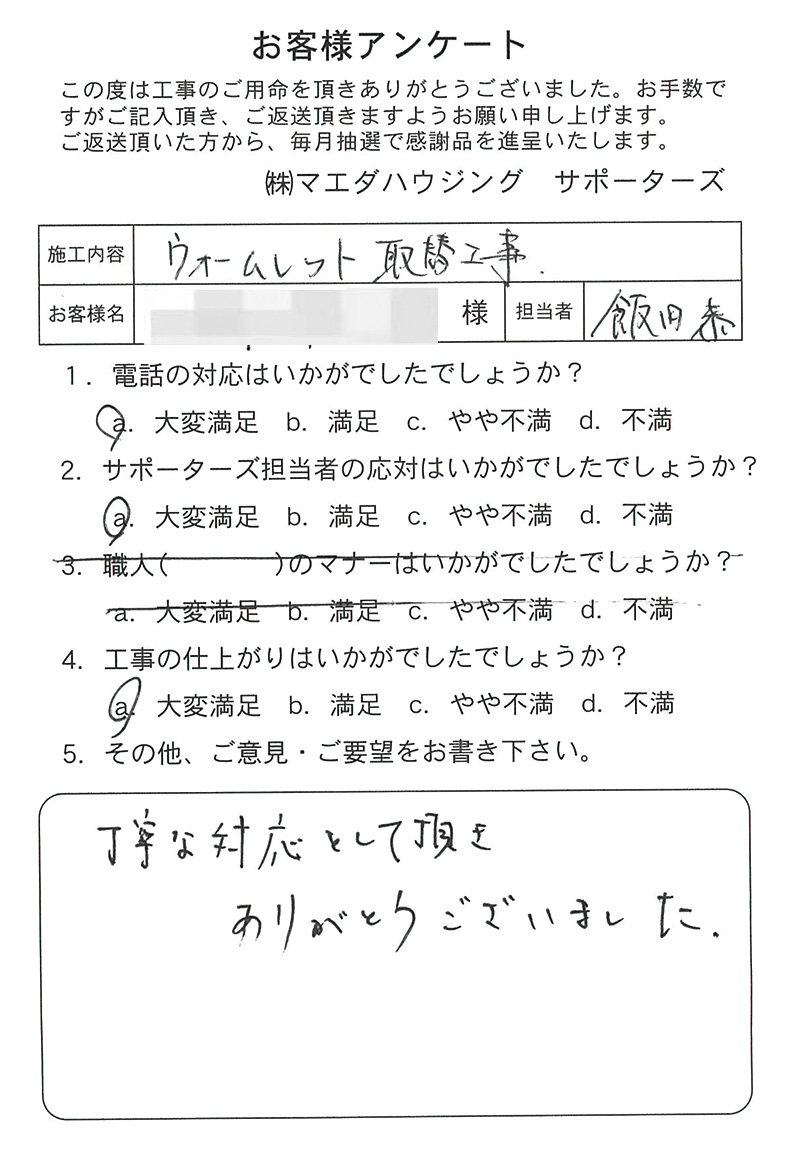 お客様アンケート
この度は工事のご用命を頂きありがとうございました。お手数で
すがご記入頂き、ご返送頂きますようお願い申し上げます。
ご返送頂いた方から、毎月抽選で感謝品を進呈いたします。
㈱マエダハウジング　サポーターズ
施工内容 ウォームレット 取替工事.
お客様名 様 担当者 飯田 恭
1. 電話の対応はいかがでしたでしょうか？
a. 大変満足 b. 満足 c. やや不満 d. 不満
2. サポーターズ担当者の応対はいかがでしたでしょうか？
a. 大変満足 b. 満足 c. やや不満 d. 不満
3. 職人(　　　)のマナーはいかがでしたでしょうか？
a. 大変満足 b. 満足 c. やや不満 d. 不満
4. 工事の仕上がりはいかがでしたでしょうか？
a. 大変満足 b. 満足 c. やや不満 d. 不満
5. その他、ご意見・ご要望をお書き下さい。
丁寧な対応をして頂き
ありがとうございました.